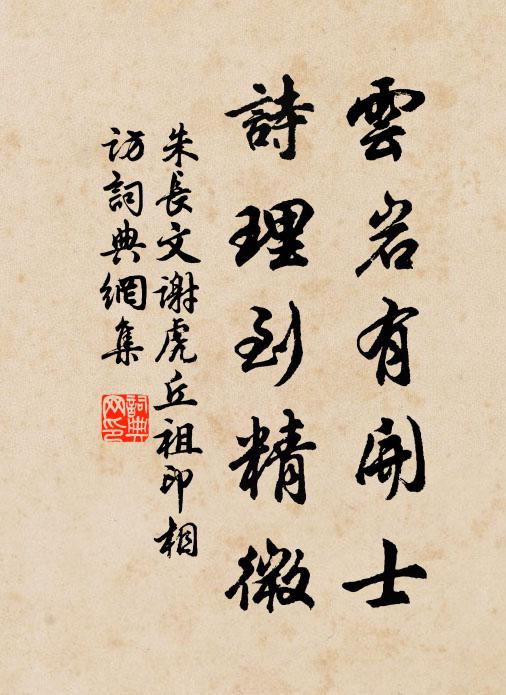 雲岩有開士
詩理到精微
朱長文謝虎丘祖印相
訪詞典網集
詞典網印